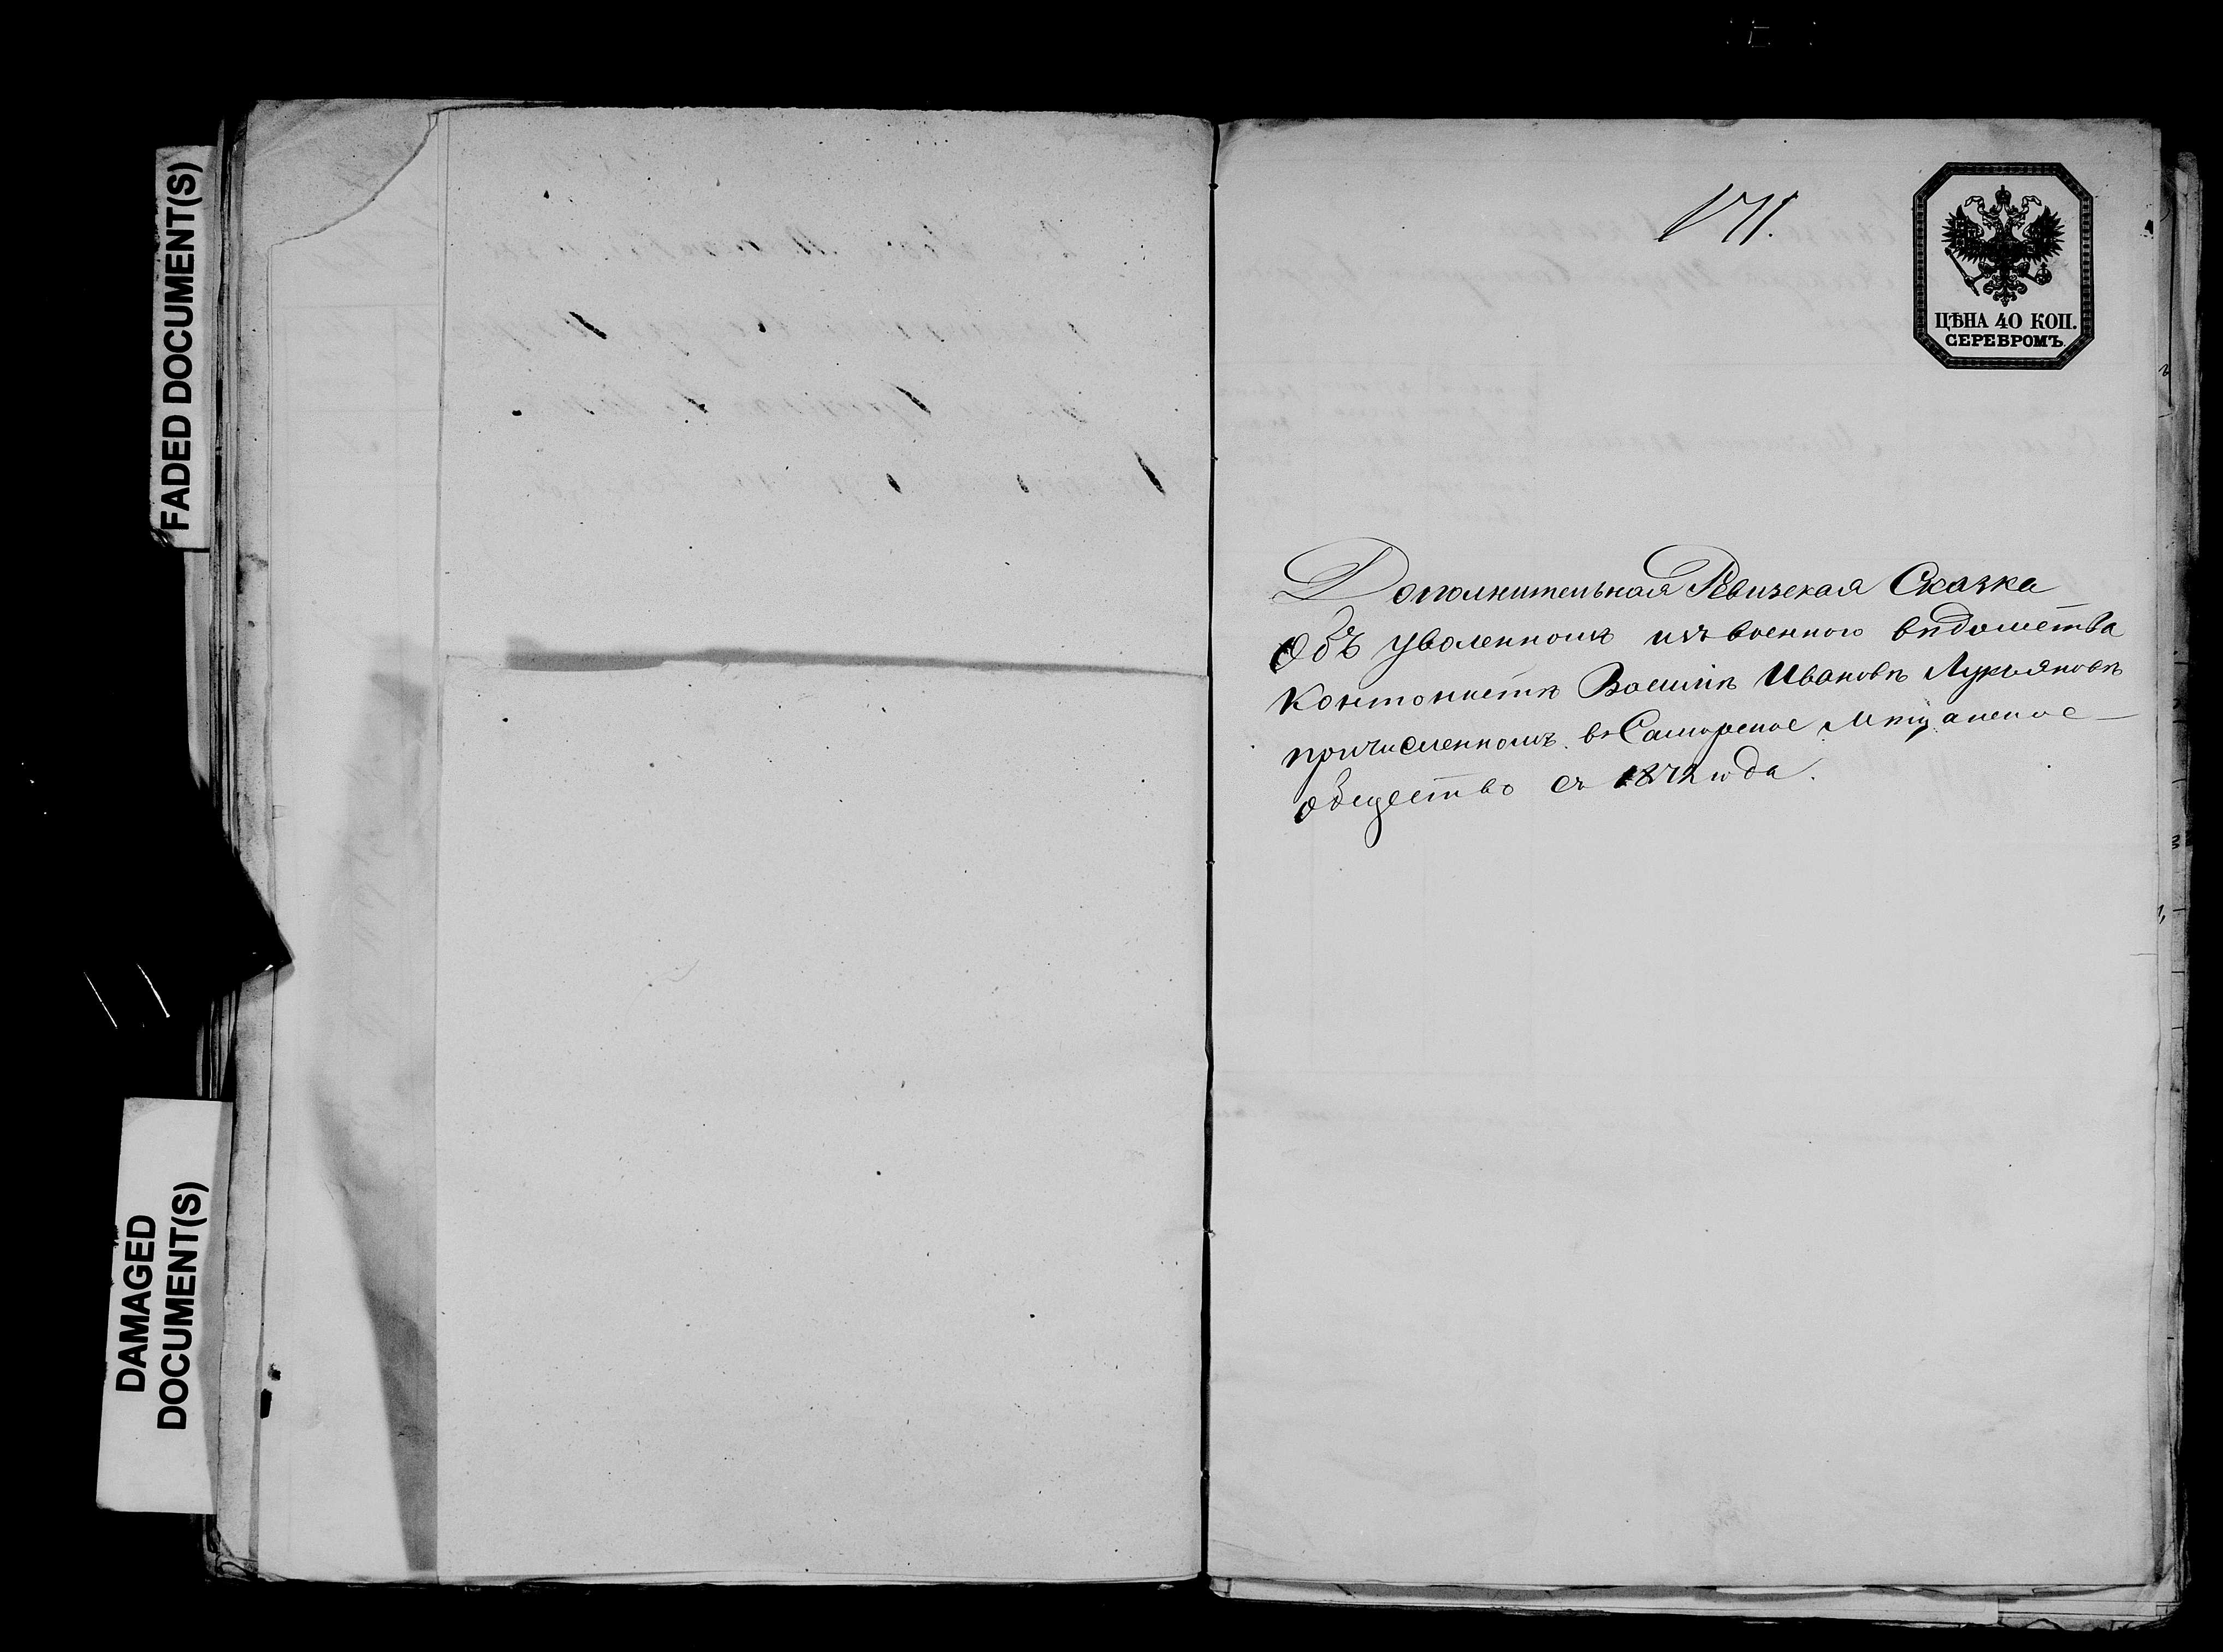 FADED DOCUMENT(S)
DAMAGED
DOCUMENT(S)
171.
ЦѢНА 40 КОП.
СЕРЕБРОМЪ.
Дополнительная Ревизская Сказка
Объ уволенномъ изъ военного вѣдомства
Кантонистѣ Василіѣ Ивановѣ Лукьяновѣ
причисленномъ въ Самарское Мѣщанское
общество съ 1872 года.